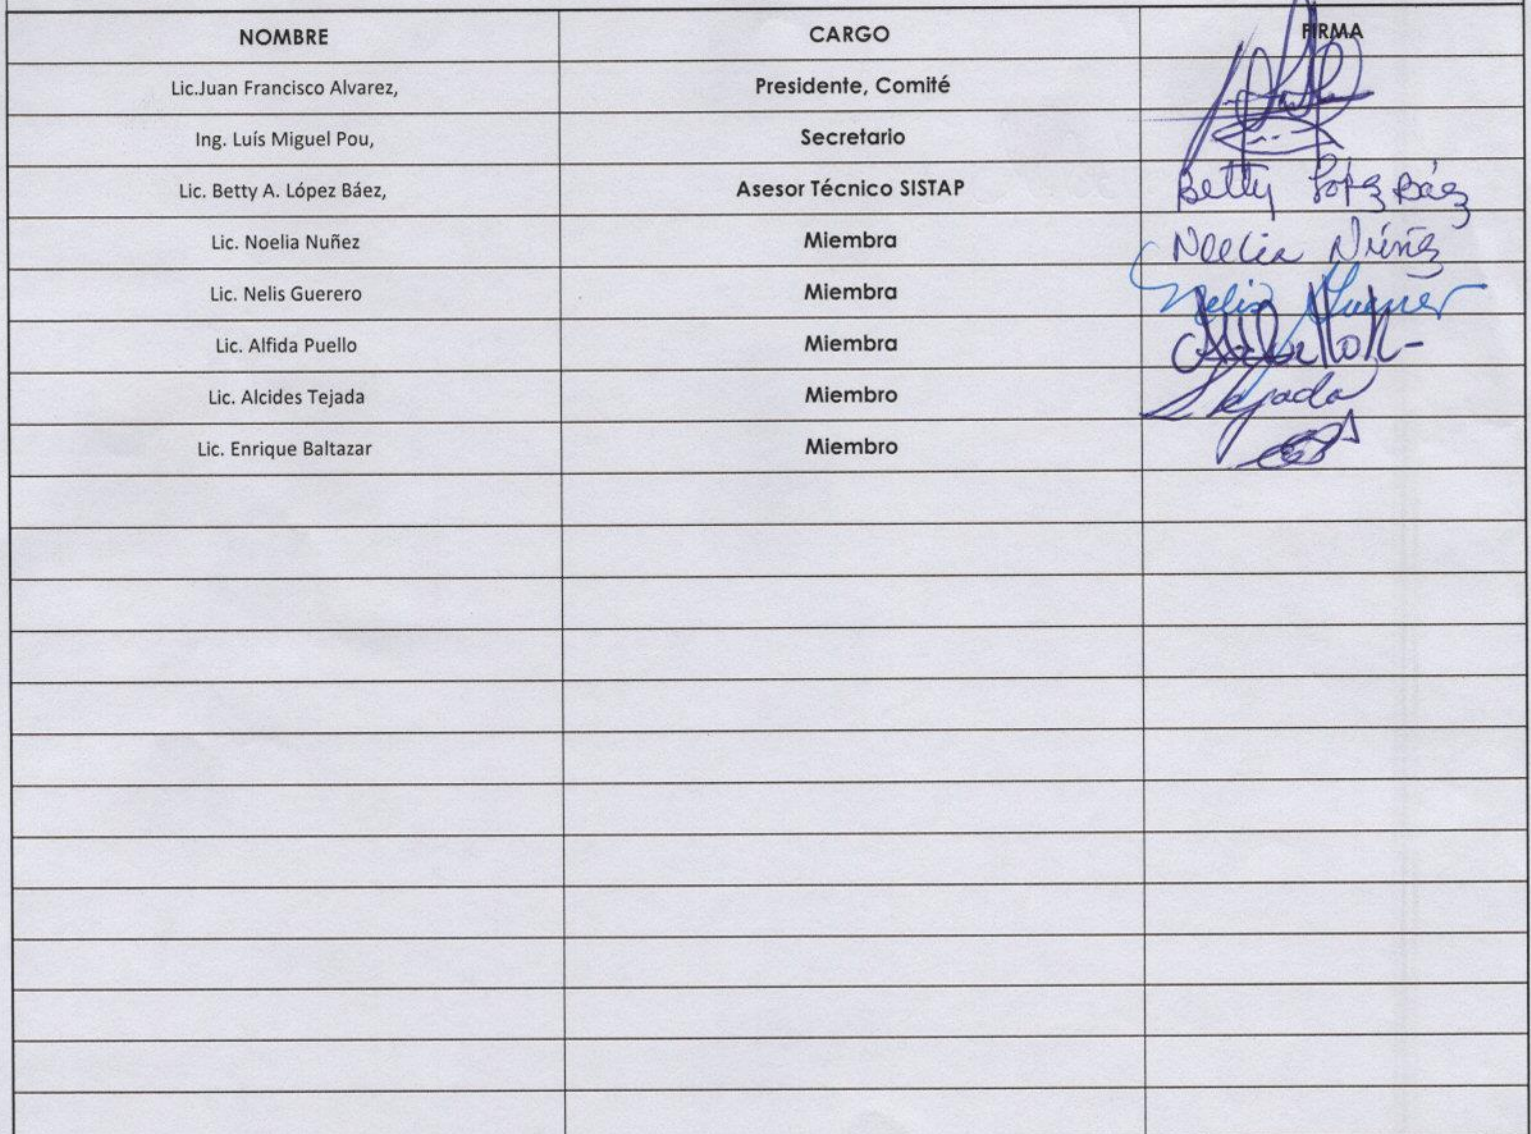 NOMBRE CARGO FIRMA
Lic.Juan Francisco Alvarez, Presidente, Comité
Ing. Luís Miguel Pou, Secretario
Lic. Betty A. López Báez, Asesor Técnico SISTAP Betty López Báez
Lic. Noelia Nuñez Miembra Noelia Núñez
Lic. Nelis Guerero Miembra Nelis
Lic. Alfida Puello Miembra
Lic. Alcides Tejada Miembro Tejada
Lic. Enrique Baltazar Miembro